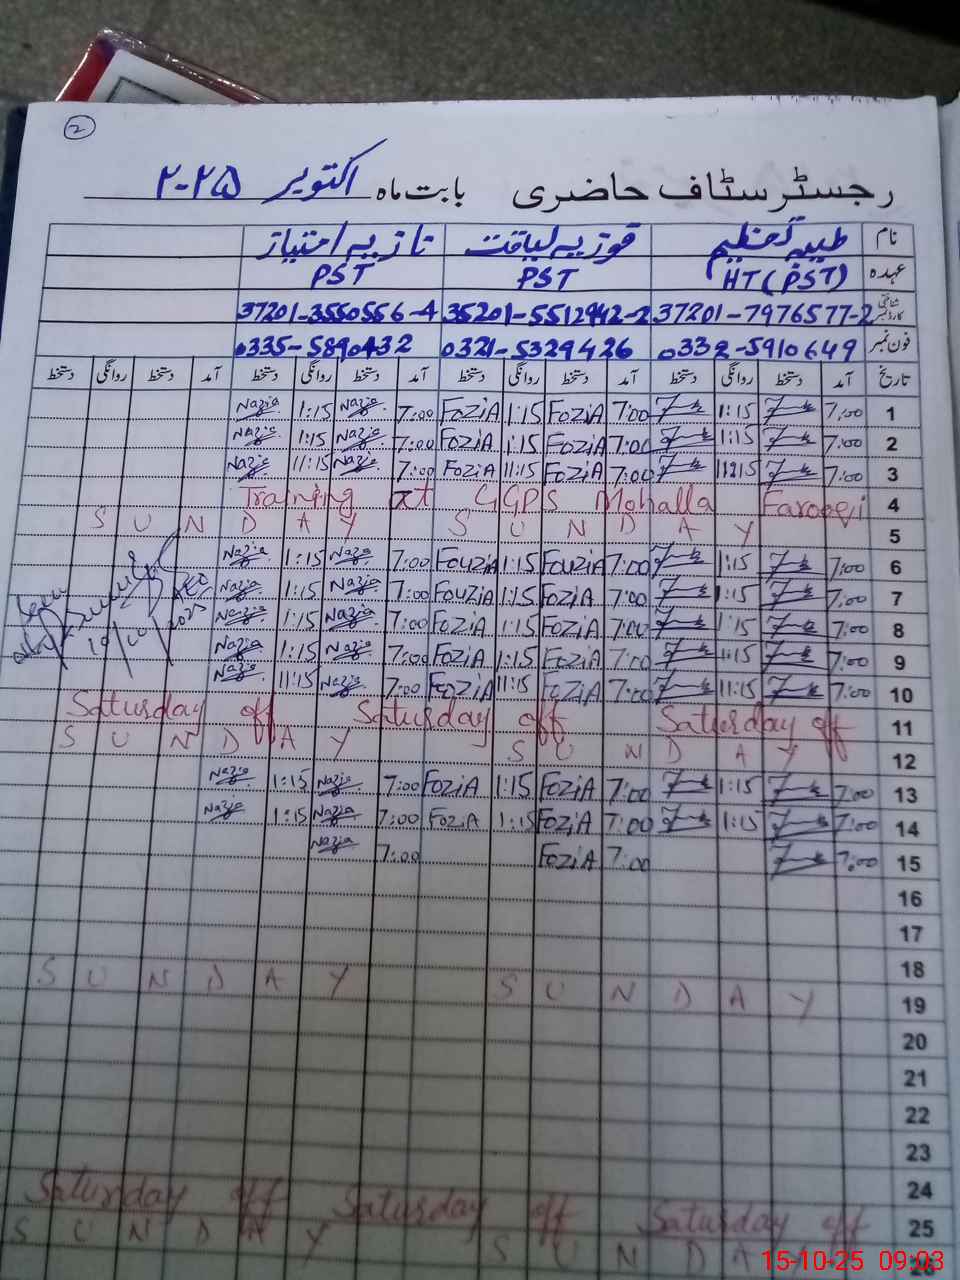 2
رجسٹر سٹاف حاضری بابت ماہ اکتوبر ۲۰۲۵
نام طیبہ تعظیم فوزیہ لیاقت نازیہ امتیاز
عہدہ HT (PST) PST PST
شناختی کارڈ نمبر 37201-7976577-2 35201-5512942-2 37201-3550556-4
فون نمبر 0332-5910649 0321-5329426 0335-5890432
تاریخ آمد دستخط روانگی دستخط آمد دستخط روانگی دستخط آمد دستخط روانگی دستخط آمد دستخط روانگی دستخط
1 7:00 1:15 7:00 FoziA 1:15 FoziA 7:00 Nazia 1:15 Nazia
2 7:00 1:15 7:00 FoziA 1:15 FoziA 7:00 Nazia 1:15 Nazia
3 7:00 11:15 7:00 FoziA 11:15 FoziA 7:00 Nazia 11:15 Nazia
4 Training at GGPS Mohalla Farooqi
5 SUNDAY SUNDAY
6 7:00 1:15 7:00 FouziA 1:15 FouziA 7:00 Nazia 1:15 Nazia
7 7:00 1:15 7:00 FoziA 1:15 FouziA 7:00 Nazia 1:15 Nazia
8 7:00 1:15 7:00 FoziA 1:15 FoziA 7:00 Nazia 1:15 Nazia
9 7:00 1:15 7:00 FoziA 1:15 FoziA 7:00 Nazia 1:15 Nazia
10 7:00 11:15 7:00 FoziA 11:15 FoziA 7:00 Nazia 11:15 Nazia
AEO
10/10/2025
11 Saturday off Saturday off Saturday off
12 SUNDAY SUNDAY
13 7:00 1:15 7:00 FoziA 1:15 FoziA 7:00 Nazia 1:15 Nazia
14 7:00 1:15 7:00 FoziA 1:15 FoziA 7:00 Nazia 1:15 Nazia
15 7:00 7:00 FoziA 7:00 Nazia
16
17
18
19 SUNDAY SUNDAY
20
21
22
23
24
25 Saturday off Saturday off Saturday off
26 SUNDAY SUNDAY
15-10-25 09:03